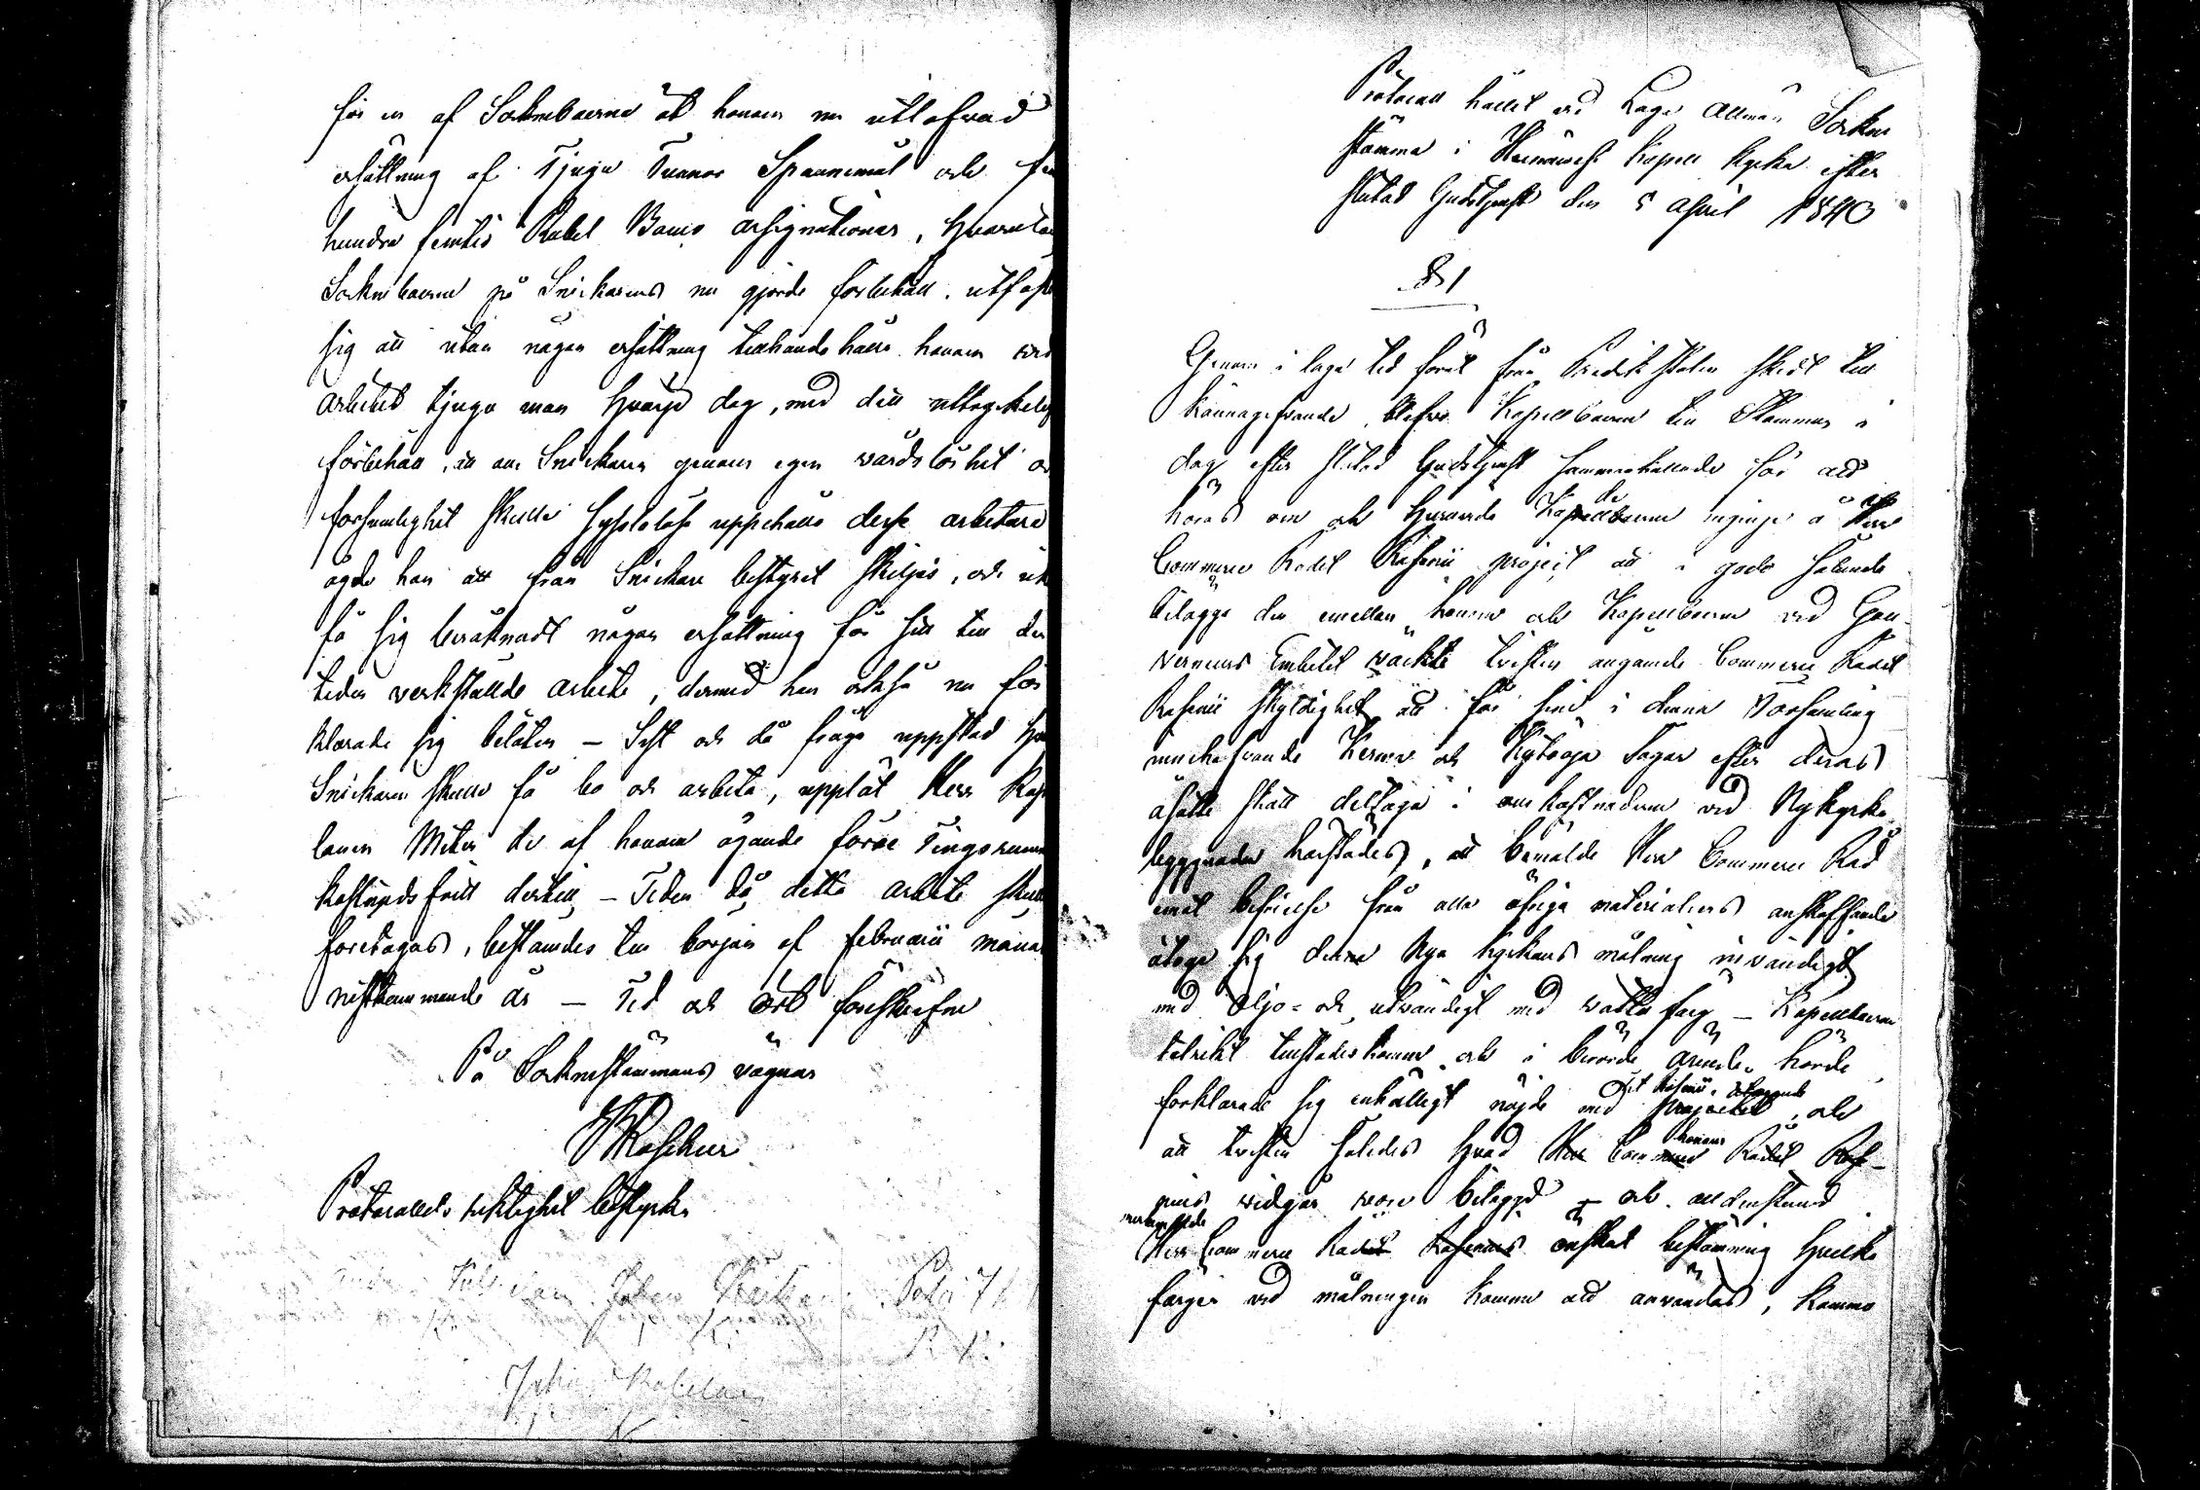 för en af Sockneboerne åt honom nu utlofvad
ersättning af Tjugu Tunnor Spannemål och
hundra femtio Rubel Banco assignationer, hvarutom
Sockneboerne på Snickarens nu gjorde förbehåll, utfäste
sig att utan någon ersättning tillhandahålla honom wid
arbetet tjugu man hvarje dag, med det uttryckelig
förbehåll, att om Snickaren genom egen vårdslöshet och
försumlighet skulle sysslolöse uppehålla desse arbetare
ägde han att från Snickare bestyret skiljas, och icke
få sig beräknadt någon ersättning för sitt till den
tiden verkställde arbete, dermed han också nu för
klarade sig belåten – Sist och då fråga uppstod hvar
Snickaren skulle få bo och arbeta, upplät Herr Kap
lanen de af honom ägande förre Tingsrummen
kostnadsfritt dertill, – Tiden då detta arbete skulle
företagas, bestämdes till början af februarii månad
nästkommande år – Tid och Ort föreskrefne
På Sockenstämmans vägnar
Protocollets riktighet bestyrka
Johan
Protocoll hållet vid Laga Allmän Sockne
stämma i Kapell kyrka efter
slutad Gudstjenst den 5 April 1840
§ 1
Genom i laga tid förut från Predikstolen skedt till
kännagifvande, blefvo Kapellboerne till Stämmas i
dag efter slutad Gudstjenst sammankallade för att
höras om och huruvida Kapellboerne ingingo å Herr
Commerce Rådet project att i godo således
bilägga den emellan honom och Kapellboerne vid Gou-
verneurs Embetet väckte tvisten angående Commerce Rådet
skyldighet att för sine i denne Församling
innehafvande Hemman och Sågar efter deras
åsatte skatt deltaga i omkostnaderne vid Nykyrko
byggnaden härstädes, att bemälde Herr Commerce Råd
emot befrielse från alla öfriga materialiers anskaffande
åtoge sig denne Nya kyrkans målning invändigt
med Oljo- och utvändigt med vatten färg – Kapellboerne
talrikt tillstädeskomne och i berörde ärende hörde
förklarade sig enhälligt nöjde med projectet, och
att tvisten således hvad honom Rådet
vidgår vore bilagd – och alldenstund
Herr Commerce Rådet önskat bestämning hvilka
färger vid målningen komme att användas, komme